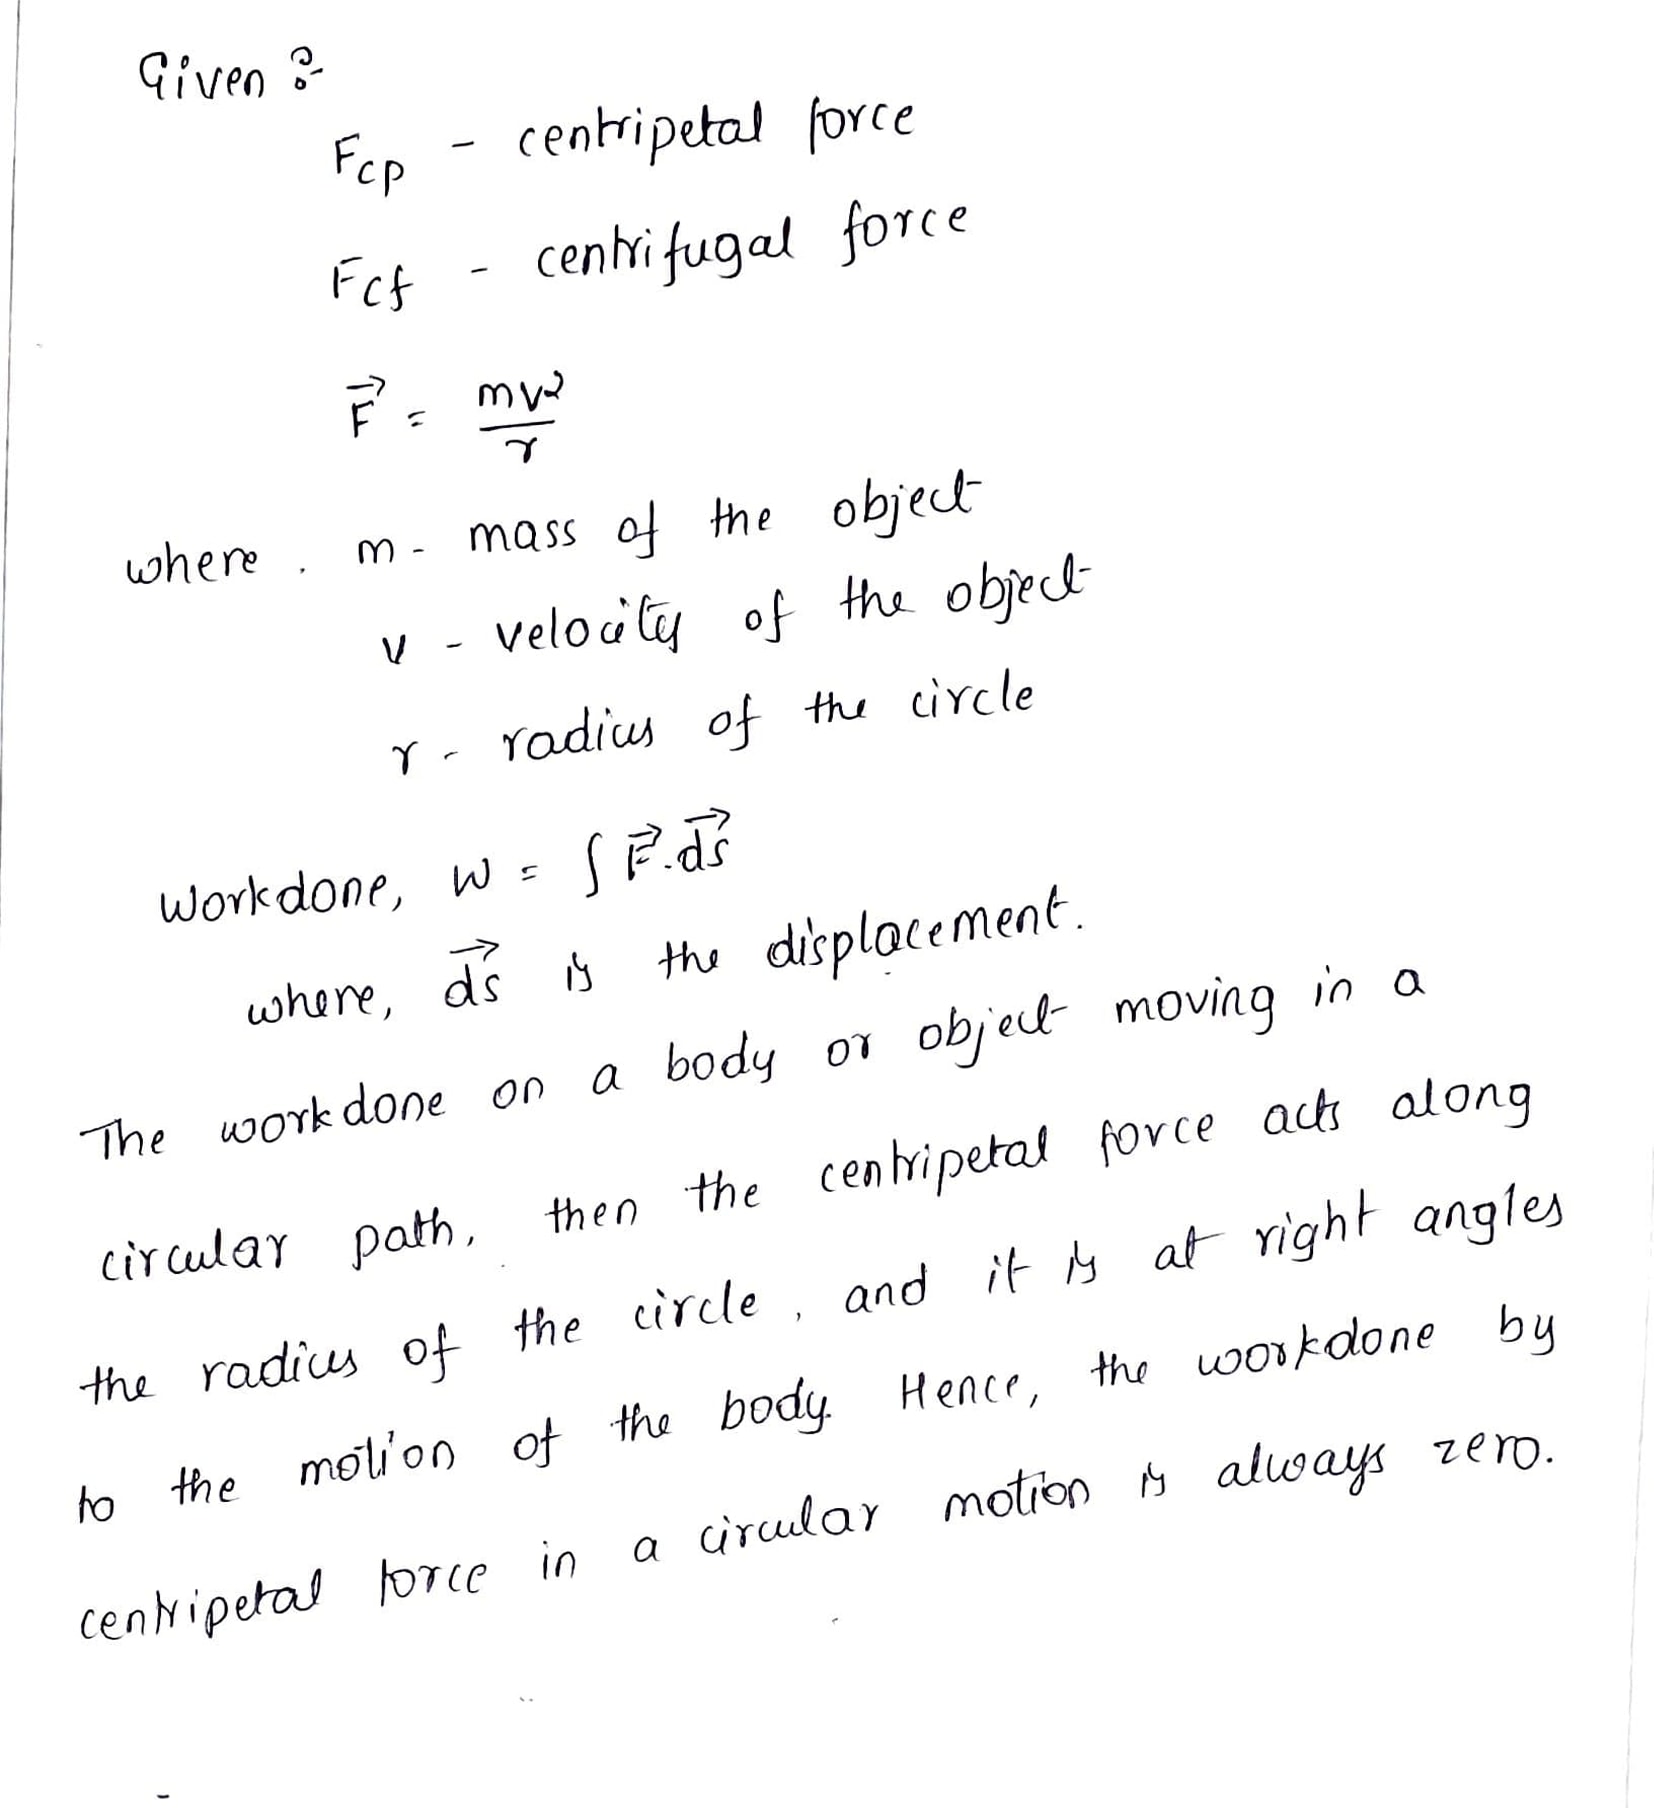 Given :-
Fcp - centripetal force
Fcf - centrifugal force
F⃗ = mv²/r
where, m - mass of the object
v - velocity of the object
r - radius of the circle
Workdone, W = ∫ F⃗.ds⃗
where, ds⃗ is the displacement.
The workdone on a body or object moving in a
circular path, then the centripetal force acts along
the radius of the circle, and it is at right angles
to the motion of the body. Hence, the workdone by
centripetal force in a circular motion is always zero.